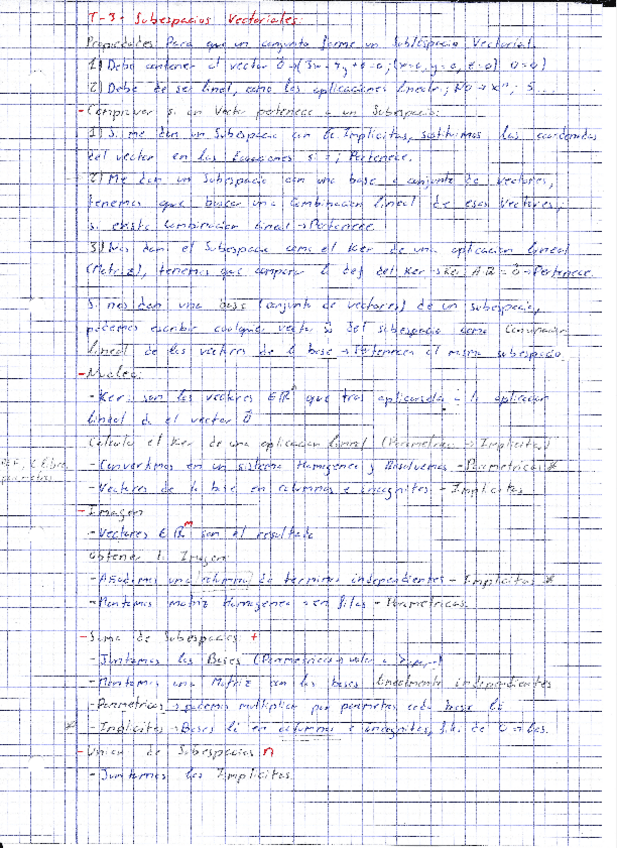 T-3. Subespacios Vectoriales
Propiedades Para que un conjunto forme un Subespacio Vectorial.
1) Debe contener el vector
2) Debe de ser lineal, como las aplicaciones lineales;
- Comprovar si un Vector pertenece a un Subespacio:
1) Si me dan un Subespacio con Ec. Implicitas, sustituimos las coordenadas
del vector en las Ecuaciones si = ; Pertenece.
2) Me dan un Subespacio con una base o conjunto de vectores,
tenemos que buscar una Combinacion lineal de esos Vectores;
si existe Combinacion lineal → Pertenece
3) Nos dan el Subespacio como el Ker de una aplicacion lineal
(Matriz), tenemos que comparar la def del Ker → Pertenece.
Si nos dan una base (conjunto de vectores) de un subespacio,
podemos escribir cualquier vector del subespacio como Convinacion
lineal de los vectores de la base → Pertenecen al mismo subespacio.
- Nucleo:
- Ker: son los vectores ∈ ℝⁿ que tras aplicarsela la aplicacion
lineal da el vector 0
Calcular el Ker de una aplicacion lineal (Parametricas → Implicitas)
- Convertimos en un sistema Homogeneo y Resolvemos - Parametricas *
- Vectores de la base en columnas e incognitas - Implicitas
- Imagen
- Vectores ∈ ℝᵐ son el resultado
Obtener la Imagen
- Añadimos una columna de terminos independientes - Implicitas *
- Montamos matriz Homogenea en filas - Parametricas
- Suma de Subespacios +
- Juntamos las Bases (Parametricas
- Montamos una Matriz con las bases linealmente independientes
- Parametricas → podemos multiplicar por parametros cada base li
* - Implicitas → Bases li en columnas e incognitas,
- Union de Subespacios ∩
- Juntamos las Implicitas